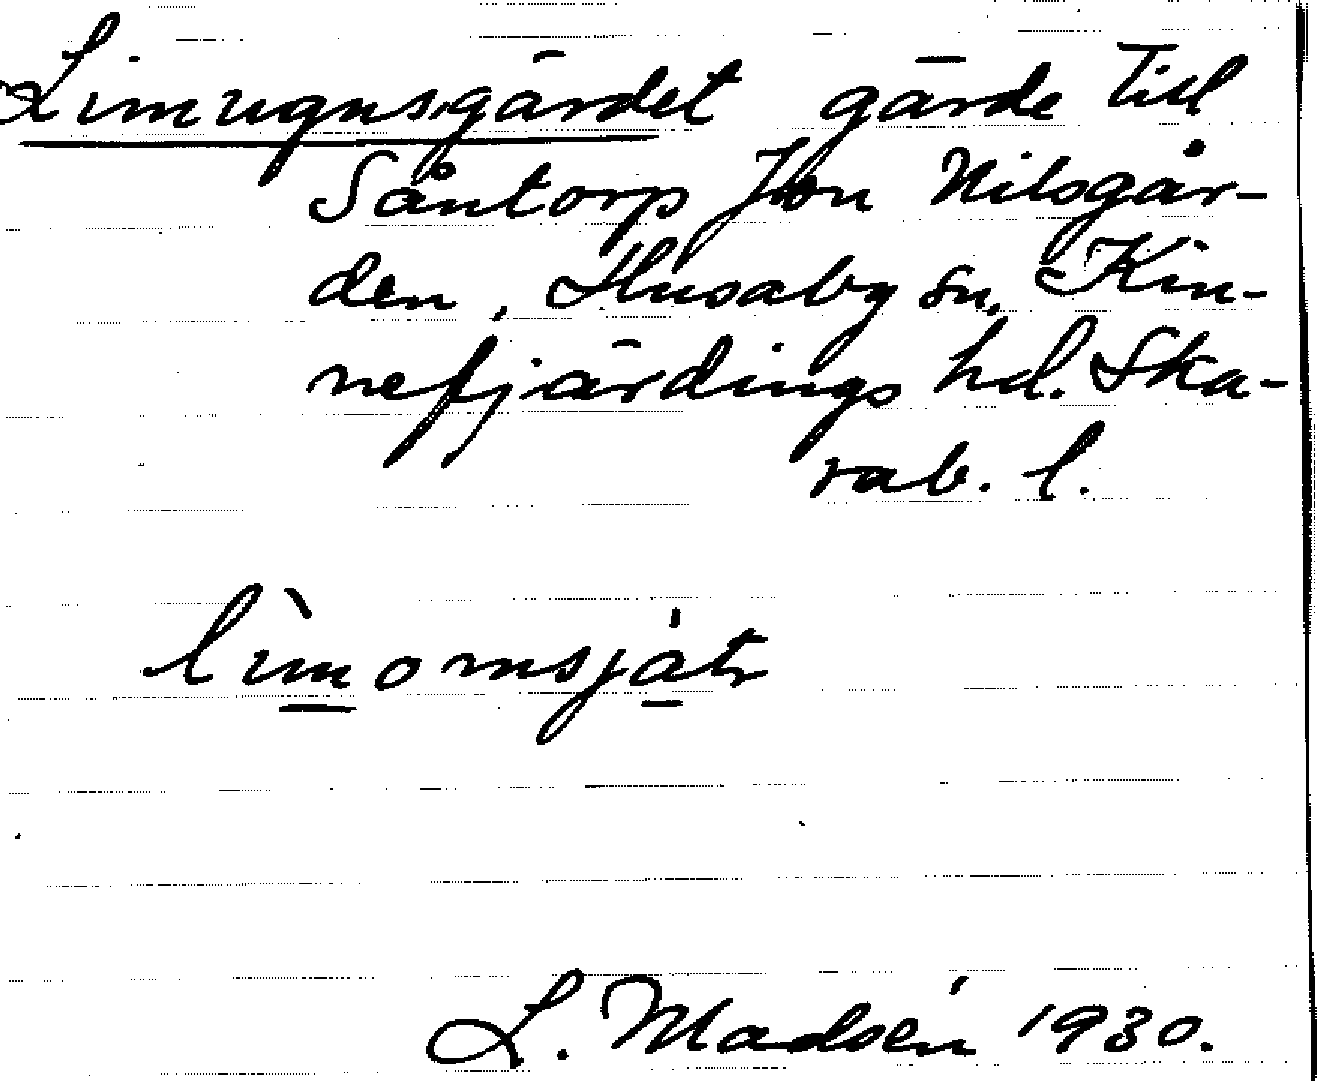 Limugnsgärdet gärde till
Såntorp Jon Nilsgår-
den, Husaby sn, Kin-
nefjärdings hd. Ska-
rab. l.
lìmomsjátr
L. Madsén 1930.